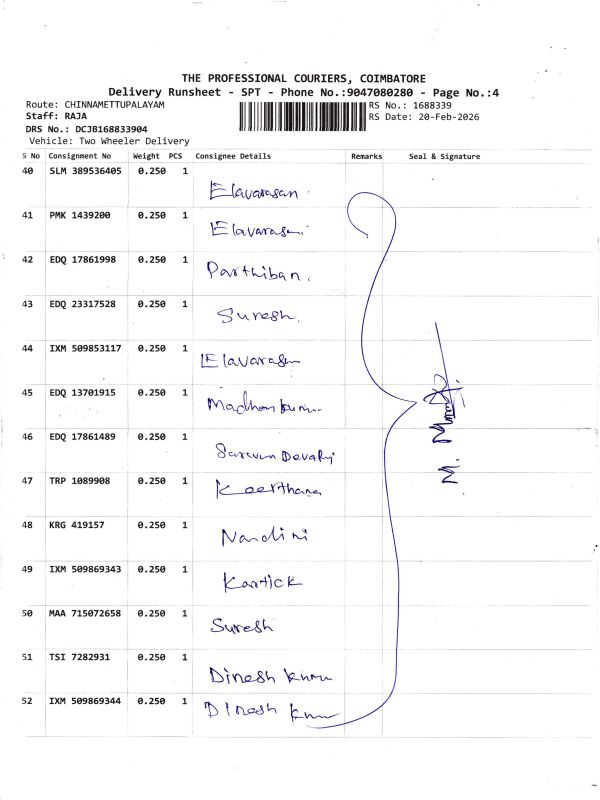 THE PROFESSIONAL COURIERS, COIMBATORE
Delivery Runsheet - SPT - Phone No.:9047080280 - Page No.:4
Route: CHINNAMETTUPALAYAM RS No.: 1688339
Staff: RAJA RS Date: 20-Feb-2026
DRS No.: DCJB168833904
Vehicle: Two Wheeler Delivery
S No Consignment No Weight PCS Consignee Details Remarks Seal & Signature
40 SLM 389536405 0.250 1
Elavarasan
41 PMK 1439200 0.250 1
Elavarasan
42 EDQ 17861998 0.250 1
Parthiban.
43 EDQ 23317528 0.250 1
Suresh.
44 IXM 509853117 0.250 1
Elavarasan
45 EDQ 13701915 0.250 1
46 EDQ 17861489 0.250 1
47 TRP 1089908 0.250 1
Keerthana
48 KRG 419157 0.250 1
Nandini
49 IXM 509869343 0.250 1
Kartick
50 MAA 715072658 0.250 1
Suresh
51 TSI 7282931 0.250 1
Dinesh
52 IXM 509869344 0.250 1
Dinesh
M.